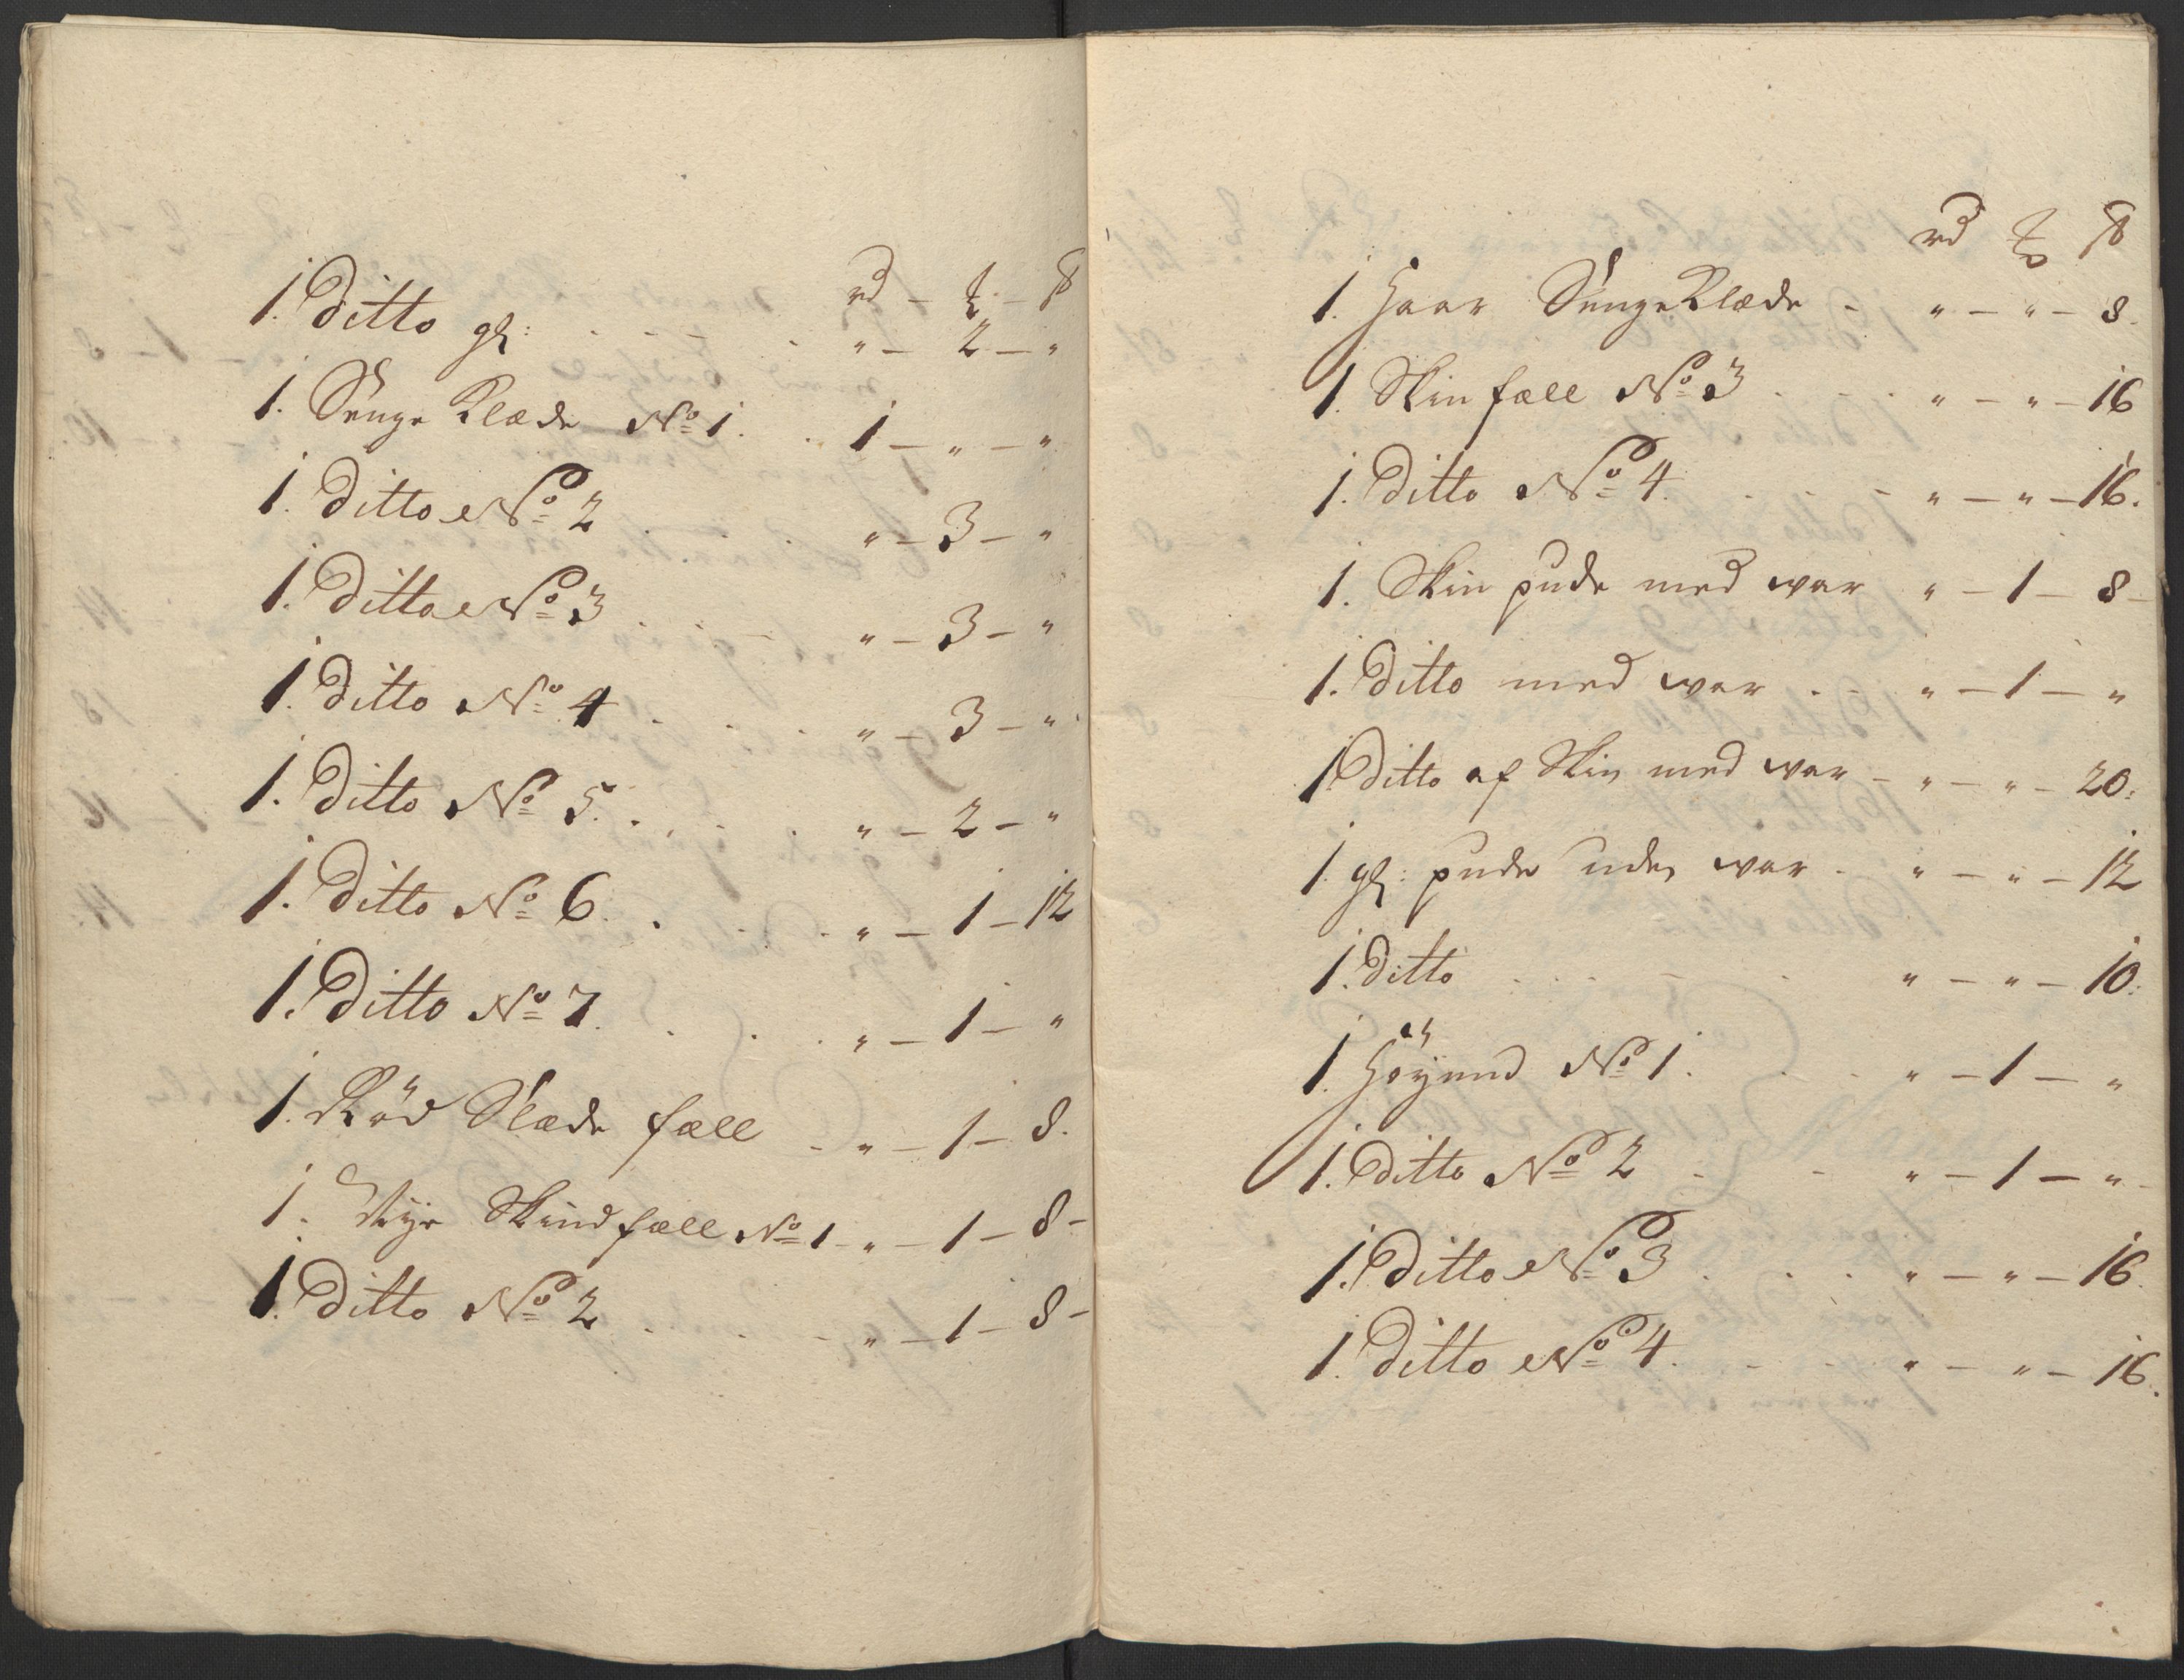 rd – ₻ – ß
1. Ditto gl: . . . . " – 2 – "
1. Senge Klæde No 1. . 1 – " – "
1. Ditto No 2 . . . " – 3 – "
1. Ditto No 3 . . . " – 3 – "
1. Ditto No 4 . . . " – 3 – "
1. Ditto No 5. . . . " – 2 – "
1. Ditto No 6. . . . " – 1 – 12
1. Ditto No 7. . . . " – 1 – "
1. Röd Slæde fæll - " – 1 – 8.
1. Rye Skind fæll No 1 - " – 1 – 8 –
1. Ditto No 2 . . . " – 1 – 8 –
rd ₻ ß
1. Haar Senge Klæde - " – " – 8.
1. Skin fæll No 3 . . . " – " – 16
1. Ditto No 4. . . . " – " – 16.
1. Skin pude med war " – 1 – 8 –
1. Ditto med war . - " – 1 – "
1 Ditto af Skin med war - " – " – 20:
1. gl: pude uden war . " – " – 12
1. Ditto . . . . " – " – 10.
1. Höyend No 1. . . " – 1 – "
1. Ditto No 2 . . " – 1 – "
1. Ditto No 3 . . . " – " – 16.
1. Ditto No 4. . . . " – " – 16.